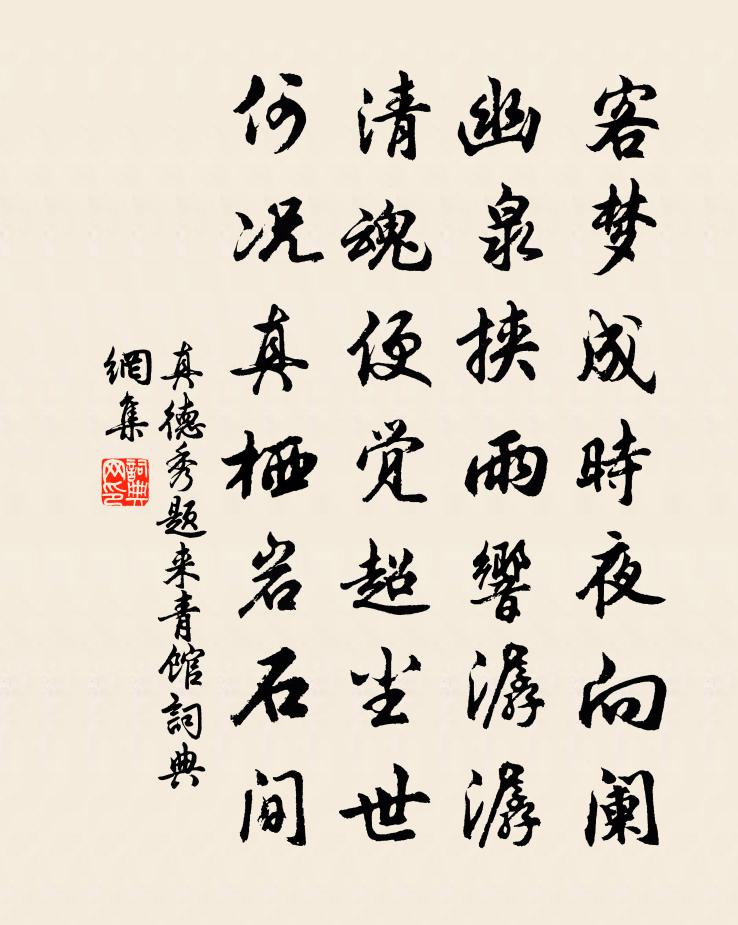 客梦成時夜向阑
幽泉挟雨響潺潺
清魂便觉超尘世
何况真栖岩石间
真德秀题来青馆詞典
網集
詞典网印